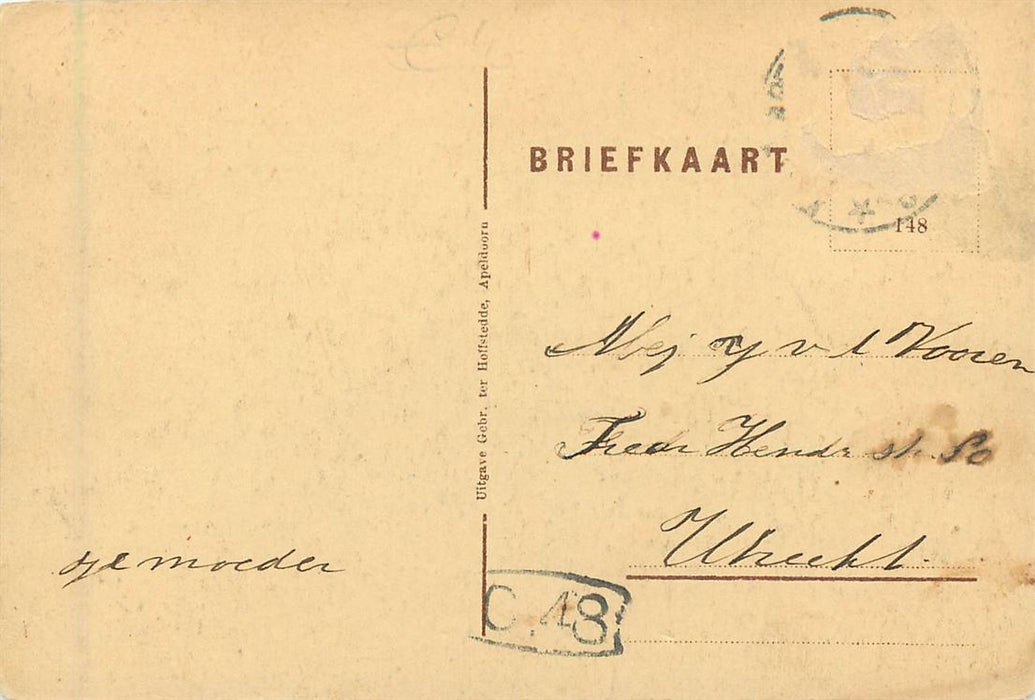 BRIEFKAART
148
Uitgave Gebr. ter Hoffstedde, Apeldoorn
Mej v d Vooren
Fredr Hendr str 80
Utrecht.
je moeder
C.48